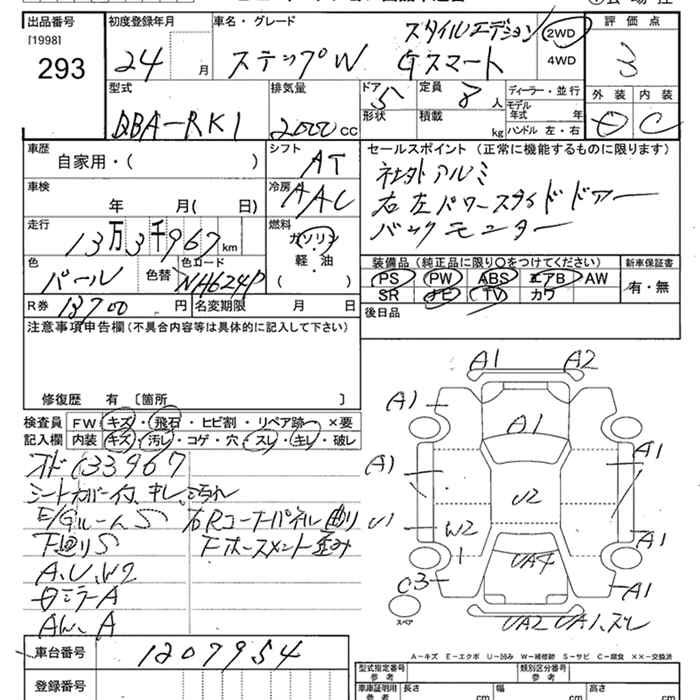 出品番号
[1998]
293
初度登録年月
24 月
車名・グレード
ステップW
スタイルエディション
Gスマート
2WD
4WD
評価点
3
外装 内装
C
型式
DBA-RK1
排気量
2000 CC
ドア
5
形状
定員
8 人
積載
kg
ディーラー・並行
モデル年式 年
ハンドル 左・右
車歴
自家用・( )
シフト
AT
車検
年 月( 日)
冷房
AAC
走行
13万3千967 km
燃料
ガソリン
軽・油
( )
色
パール
色替
色コード
NH624P
R券
13700 円
名変期限 月 日
セールスポイント(正常に機能するものに限ります)
社外アルミ
右左パワースライドドアー
バックモニター
装備品(純正品に限り○をつけてください)
PS PW ABS エアB AW
SR ナビ TV カワ
新車保証書
有・無
後日品
注意事項申告欄(不具合内容等は具体的に記入して下さい)
修復歴 有 〔箇所 〕
検査員記入欄
FW キズ・飛石・ヒビ割・リペア跡・×要
内装 キズ・汚レ・コゲ・穴・スレ・キレ・破レ
オド133967
シートカバー付、キレ、汚れ
E/GルームS
右Rコーナーパネル曲り
下廻りS
Fホースメント歪み
A、U、W2
ミラーA
A
車台番号
1207954
登録番号
A1 A2
A1
A1
A1
A1
U2
U1
W2
1
A1
UA4
C3
A1
UA2 UA1、スレ
スペア
A-キズ E-エクボ U-凹み W-補修跡 S-サビ C-腐食 ××-交換済
型式指定番号
参考
類別区分番号
参考
車庫証明用
参考
長さ cm
幅 cm
高さ cm